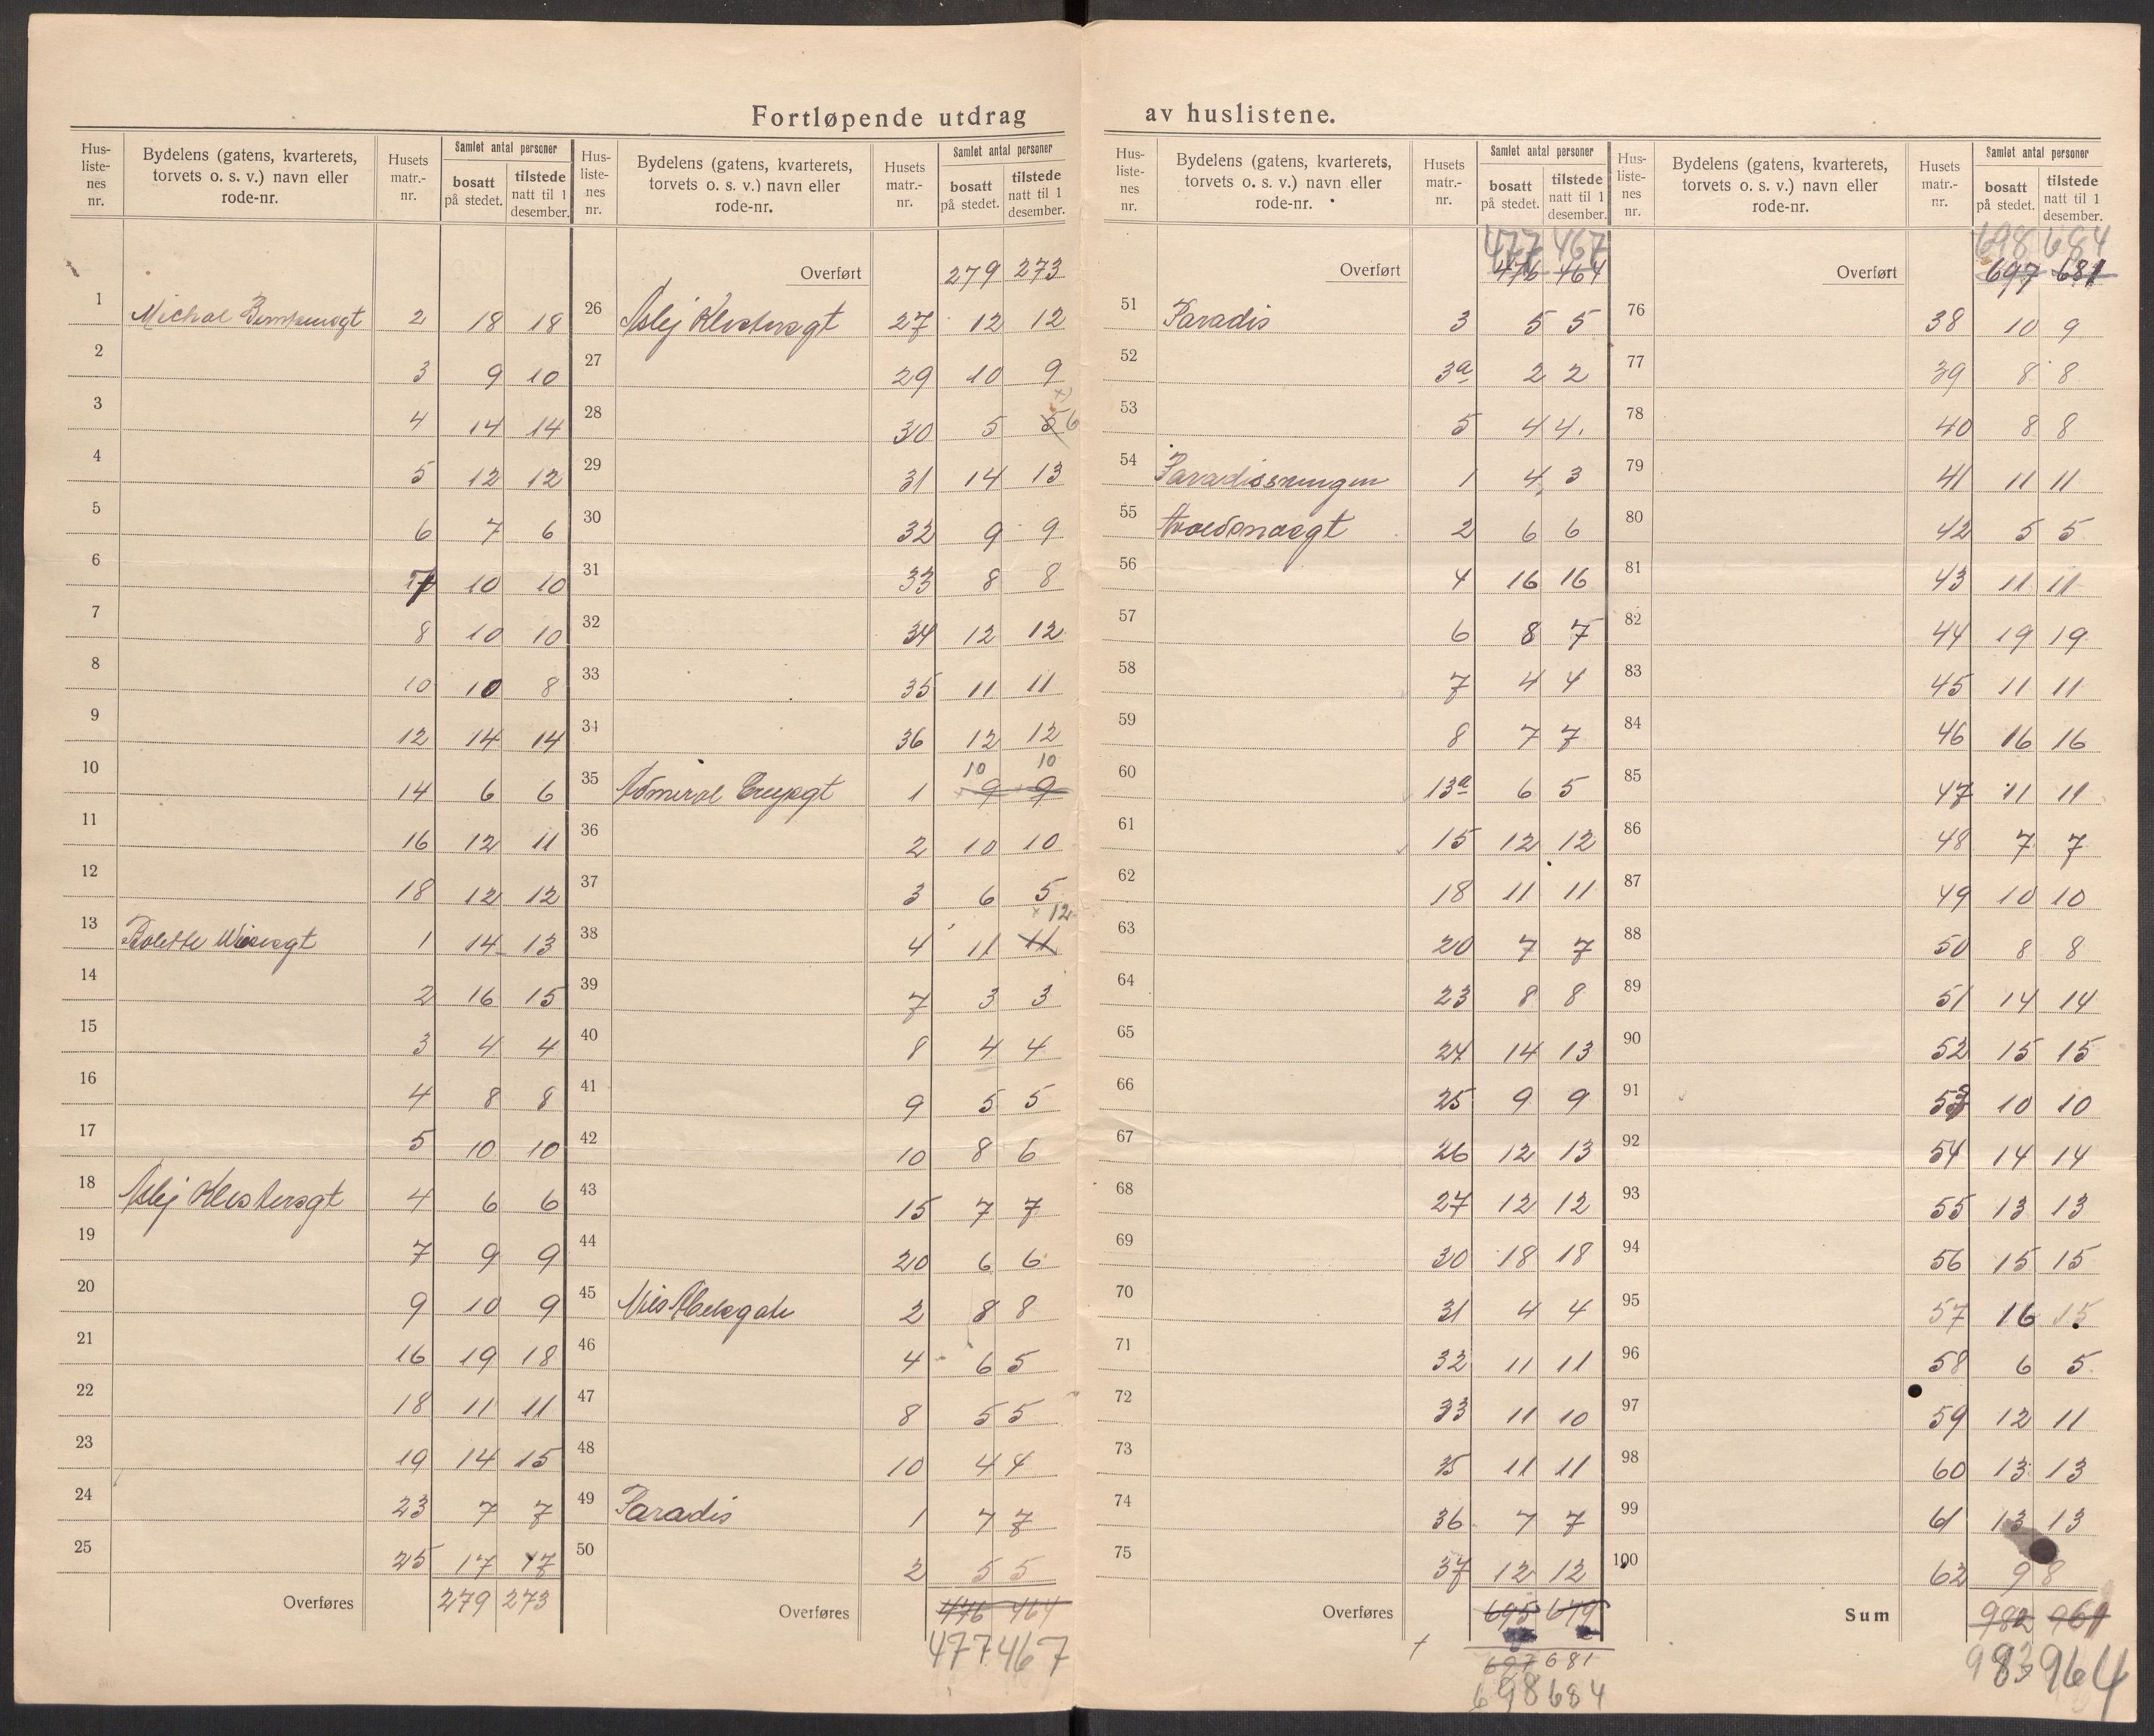 Fortløpende utdrag av huslistene.
Hus-liste-nes nr. Bydelens (gatens, kvarterets, torvets o. s. v.) navn eller rode-nr. Husets matr.-nr. Samlet antal personer bosatt på stedet. tilstede natt til 1 desember.
1 Michal 2 18 18
2 3 9 10
3 4 14 14
4 5 12 12
5 6 7 6
6 7 10 10
7 8 10 10
8 10 10 8
9 12 14 14
10 14 6 6
11 16 12 11
12 18 12 12
13 Bolette Wiesegt 1 14 13
14 2 16 15
15 3 4 4
16 4 8 8
17 5 10 10
18 Aslej Klostersgt 4 6 6
19 7 9 9
20 9 10 9
21 16 19 18
22 18 11 11
23 19 14 15
24 23 7 7
25 25 17 17
Overføres 279 273
Hus-liste-nes nr. Bydelens (gatens, kvarterets, torvets o. s. v.) navn eller rode-nr. Husets matr.-nr. Samlet antal personer bosatt på stedet. tilstede natt til 1 desember.
Overført 279 273
26 Aslej Klostersgt 27 12 12
27 29 10 9
28 30 5 5 6
29 31 14 13
30 32 9 9
31 33 8 8
32 34 12 12
33 35 11 11
34 36 12 12
10 10
35 Admiral Cruysgt 1 9 9
36 2 10 10
37 3 6 5
12
38 4 11 11
39 7 3 3
40 8 4 4
41 9 5 5
42 10 8 6
43 15 7 7
44 20 6 6
45 Nils Abelsgate 2 8 8
46 4 6 5
47 8 5 5
48 10 4 4
49 Paradis 1 7 7
50 2 5 5
Overføres 476 464
477 467
Hus-liste-nes nr. Bydelens (gatens, kvarterets, torvets o. s. v.) navn eller rode-nr. Husets matr.-nr. Samlet antal personer bosatt på stedet. tilstede natt til 1 desember.
477 467
Overført 476 464
51 Paradis 3 5 5
52 3a 2 2
53 5 4 4
54 1 4 3
55 2 6 6
56 4 16 16
57 6 8 7
58 7 4 4
59 8 7 7
60 13a 6 5
61 15 12 12
62 18 11 11
63 20 7 7
64 23 8 8
65 24 14 13
66 25 9 9
67 26 12 13
68 27 12 12
69 30 18 18
70 31 4 4
71 32 11 11
72 33 11 10
73 35 11 11
74 36 7 7
75 37 12 12
Overføres 695 679
697 681
698 684
Hus-liste-nes nr. Bydelens (gatens, kvarterets, torvets o. s. v.) navn eller rode-nr. Husets matr.-nr. Samlet antal personer bosatt på stedet. tilstede natt til 1 desember.
698 684
Overført 697 681
76 38 10 9
77 39 8 8
78 40 8 8
79 41 11 11
80 42 5 5
81 43 11 11
82 44 19 19
83 45 11 11
84 46 16 16
85 47 11 11
86 48 7 7
87 49 10 10
88 50 8 8
89 51 14 14
90 52 15 15
91 53 10 10
92 54 14 14
93 55 13 13
94 56 15 15
95 57 16 15
96 58 6 5
97 59 12 11
98 60 13 13
99 61 13 13
100 62 9 8
Sum 982 961
983 964